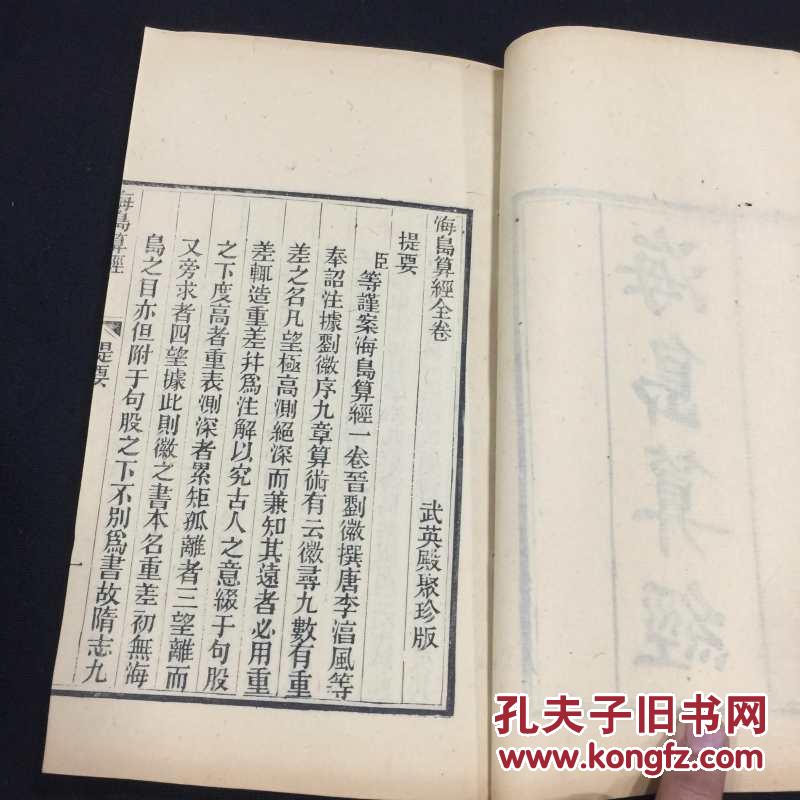 海島算經全卷 武英殿聚珍版
提要
臣等謹案海島算經一卷晉劉徽撰唐李淳風等
奉詔注據劉徽序九章算術有云徽尋九數有重
差之名凡望極高測絕深而兼知其遠者必用重
差輒造重差幷爲注解以究古人之意綴于句股
之下度高者重表測深者累矩孤離者三望離而
又旁求者四望據此則徽之書本名重差初無海
島之目亦但附于句股之下不別爲書故隋志九
海島算經 提要
海島算經
孔夫子旧书网
www.kongfz.com